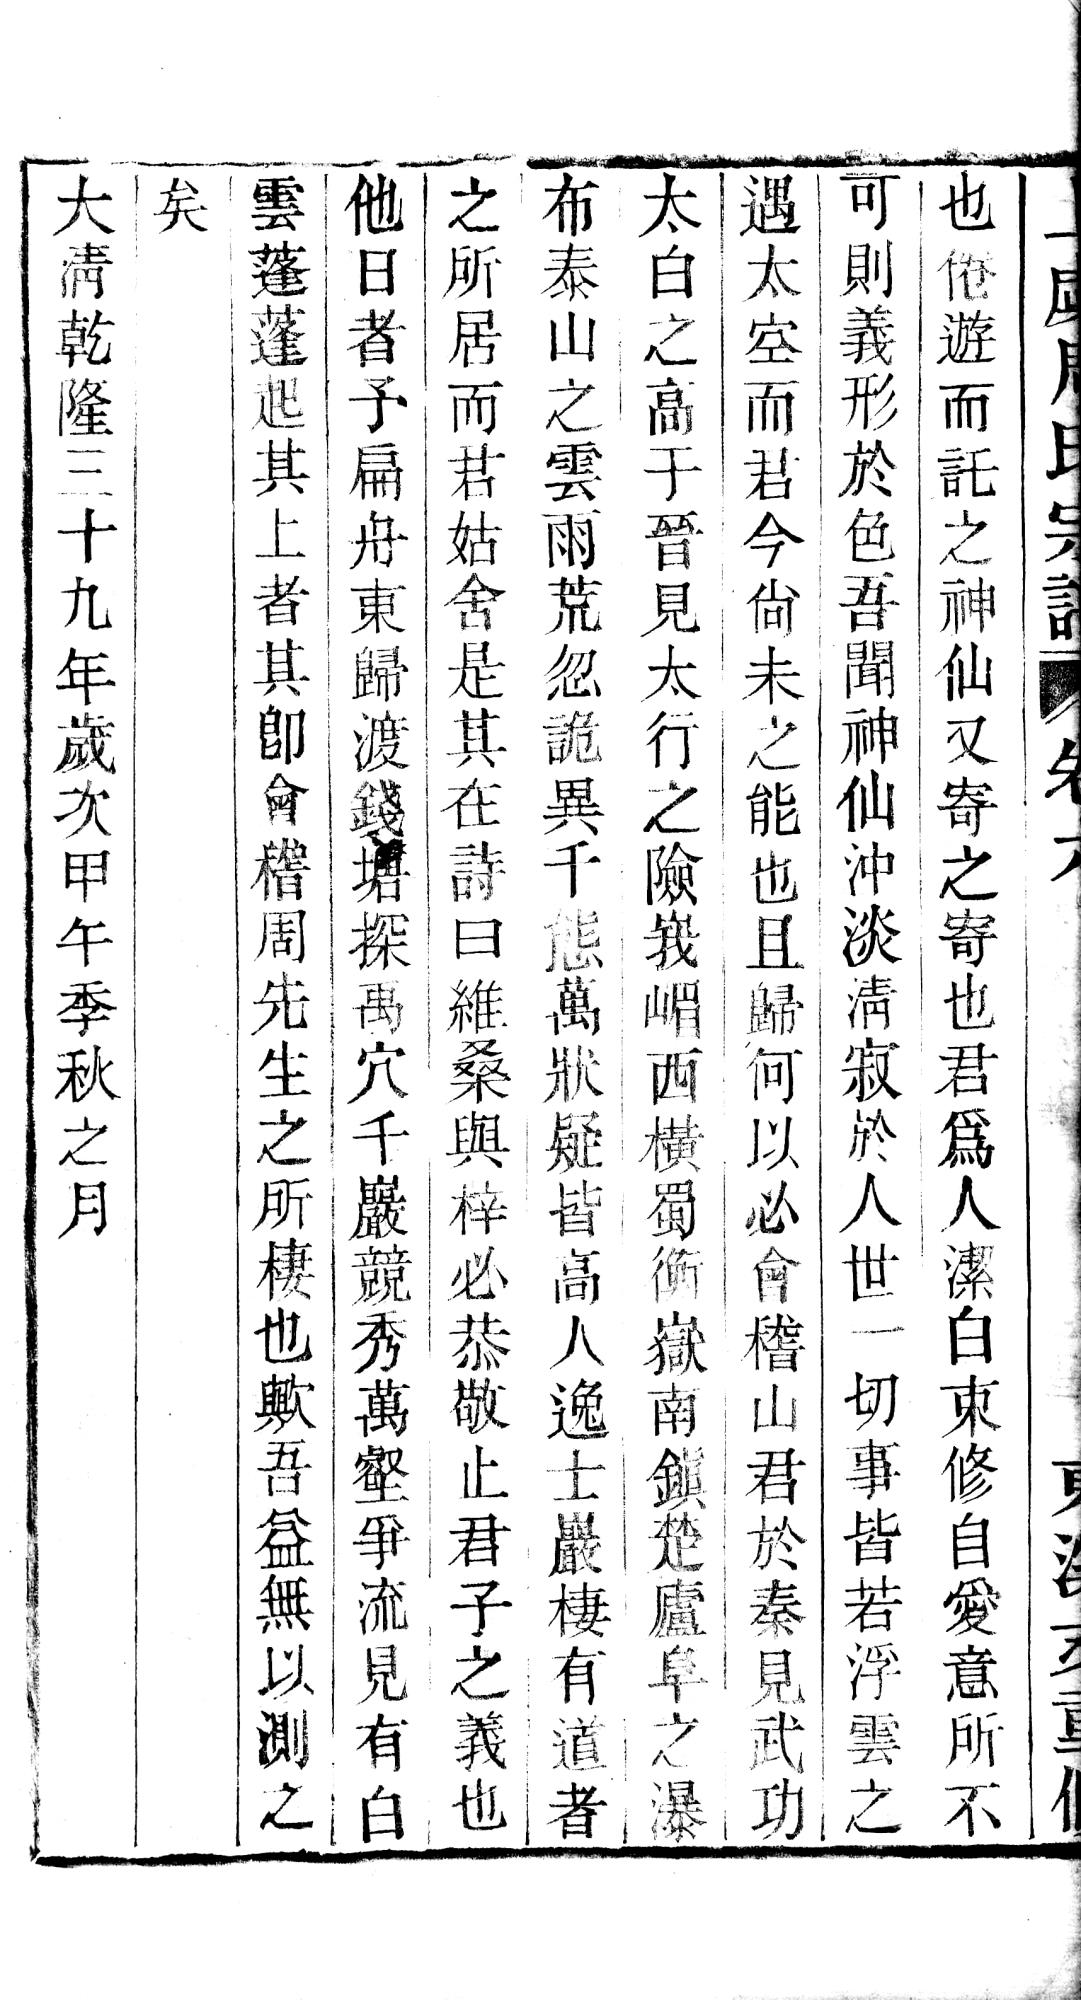 周氏宗譜 卷六
也倦遊而託之神仙又寄之寄也君爲人潔白束修自愛意所不
可則義形於色吾聞神仙沖淡淸寂於人世一切事皆若浮雲之
遇太空而君今尙未之能也且歸何以必會稽山君於秦見武功
太白之高于晉見太行之險峩嵋西橫蜀衡嶽南鎭楚廬阜之瀑
布泰山之雲雨荒忽詭異千態萬狀疑皆高人逸士巖棲有道者
之所居而君姑舍是其在詩曰維桑與梓必恭敬止君子之義也
他日者予扁舟東歸渡錢塘探禹穴千巖競秀萬壑爭流見有白
雲蓬蓬起其上者其卽會稽周先生之所棲也歟吾益無以測之
矣
大淸乾隆三十九年歲次甲午季秋之月